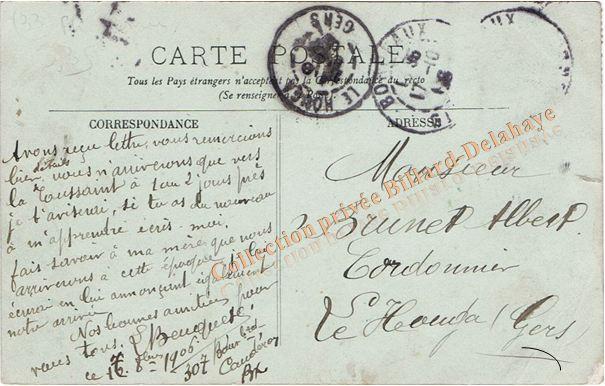 CARTE POSTALE
Tous les Pays étrangers n'acceptent pas la Correspondance du recto
(Se renseigner à la Poste)
CORRESPONDANCE
Avons reçu lettre, vous remercions
bien détails nous n'arriverons que vers
la Toussaint à 1 ou 2 jours près
je t'aviserai, si tu as du nouveau
à m'apprendre écris-moi,
fais savoir à ma mère que nous
arriverons à cette époque, je lui
écrirai en lui annonçant également
notre arrivée
Nos bonnes amitiés pour
vous tous.
ce 16 1906
307
Caudéran
Bx
ADRESSE
Monsieur
Brunet Albert
Cordonnier
Le Houga (Gers)
LE HOUGA
GERS
BORDEAUX
Collection privée Billard-Delahaye